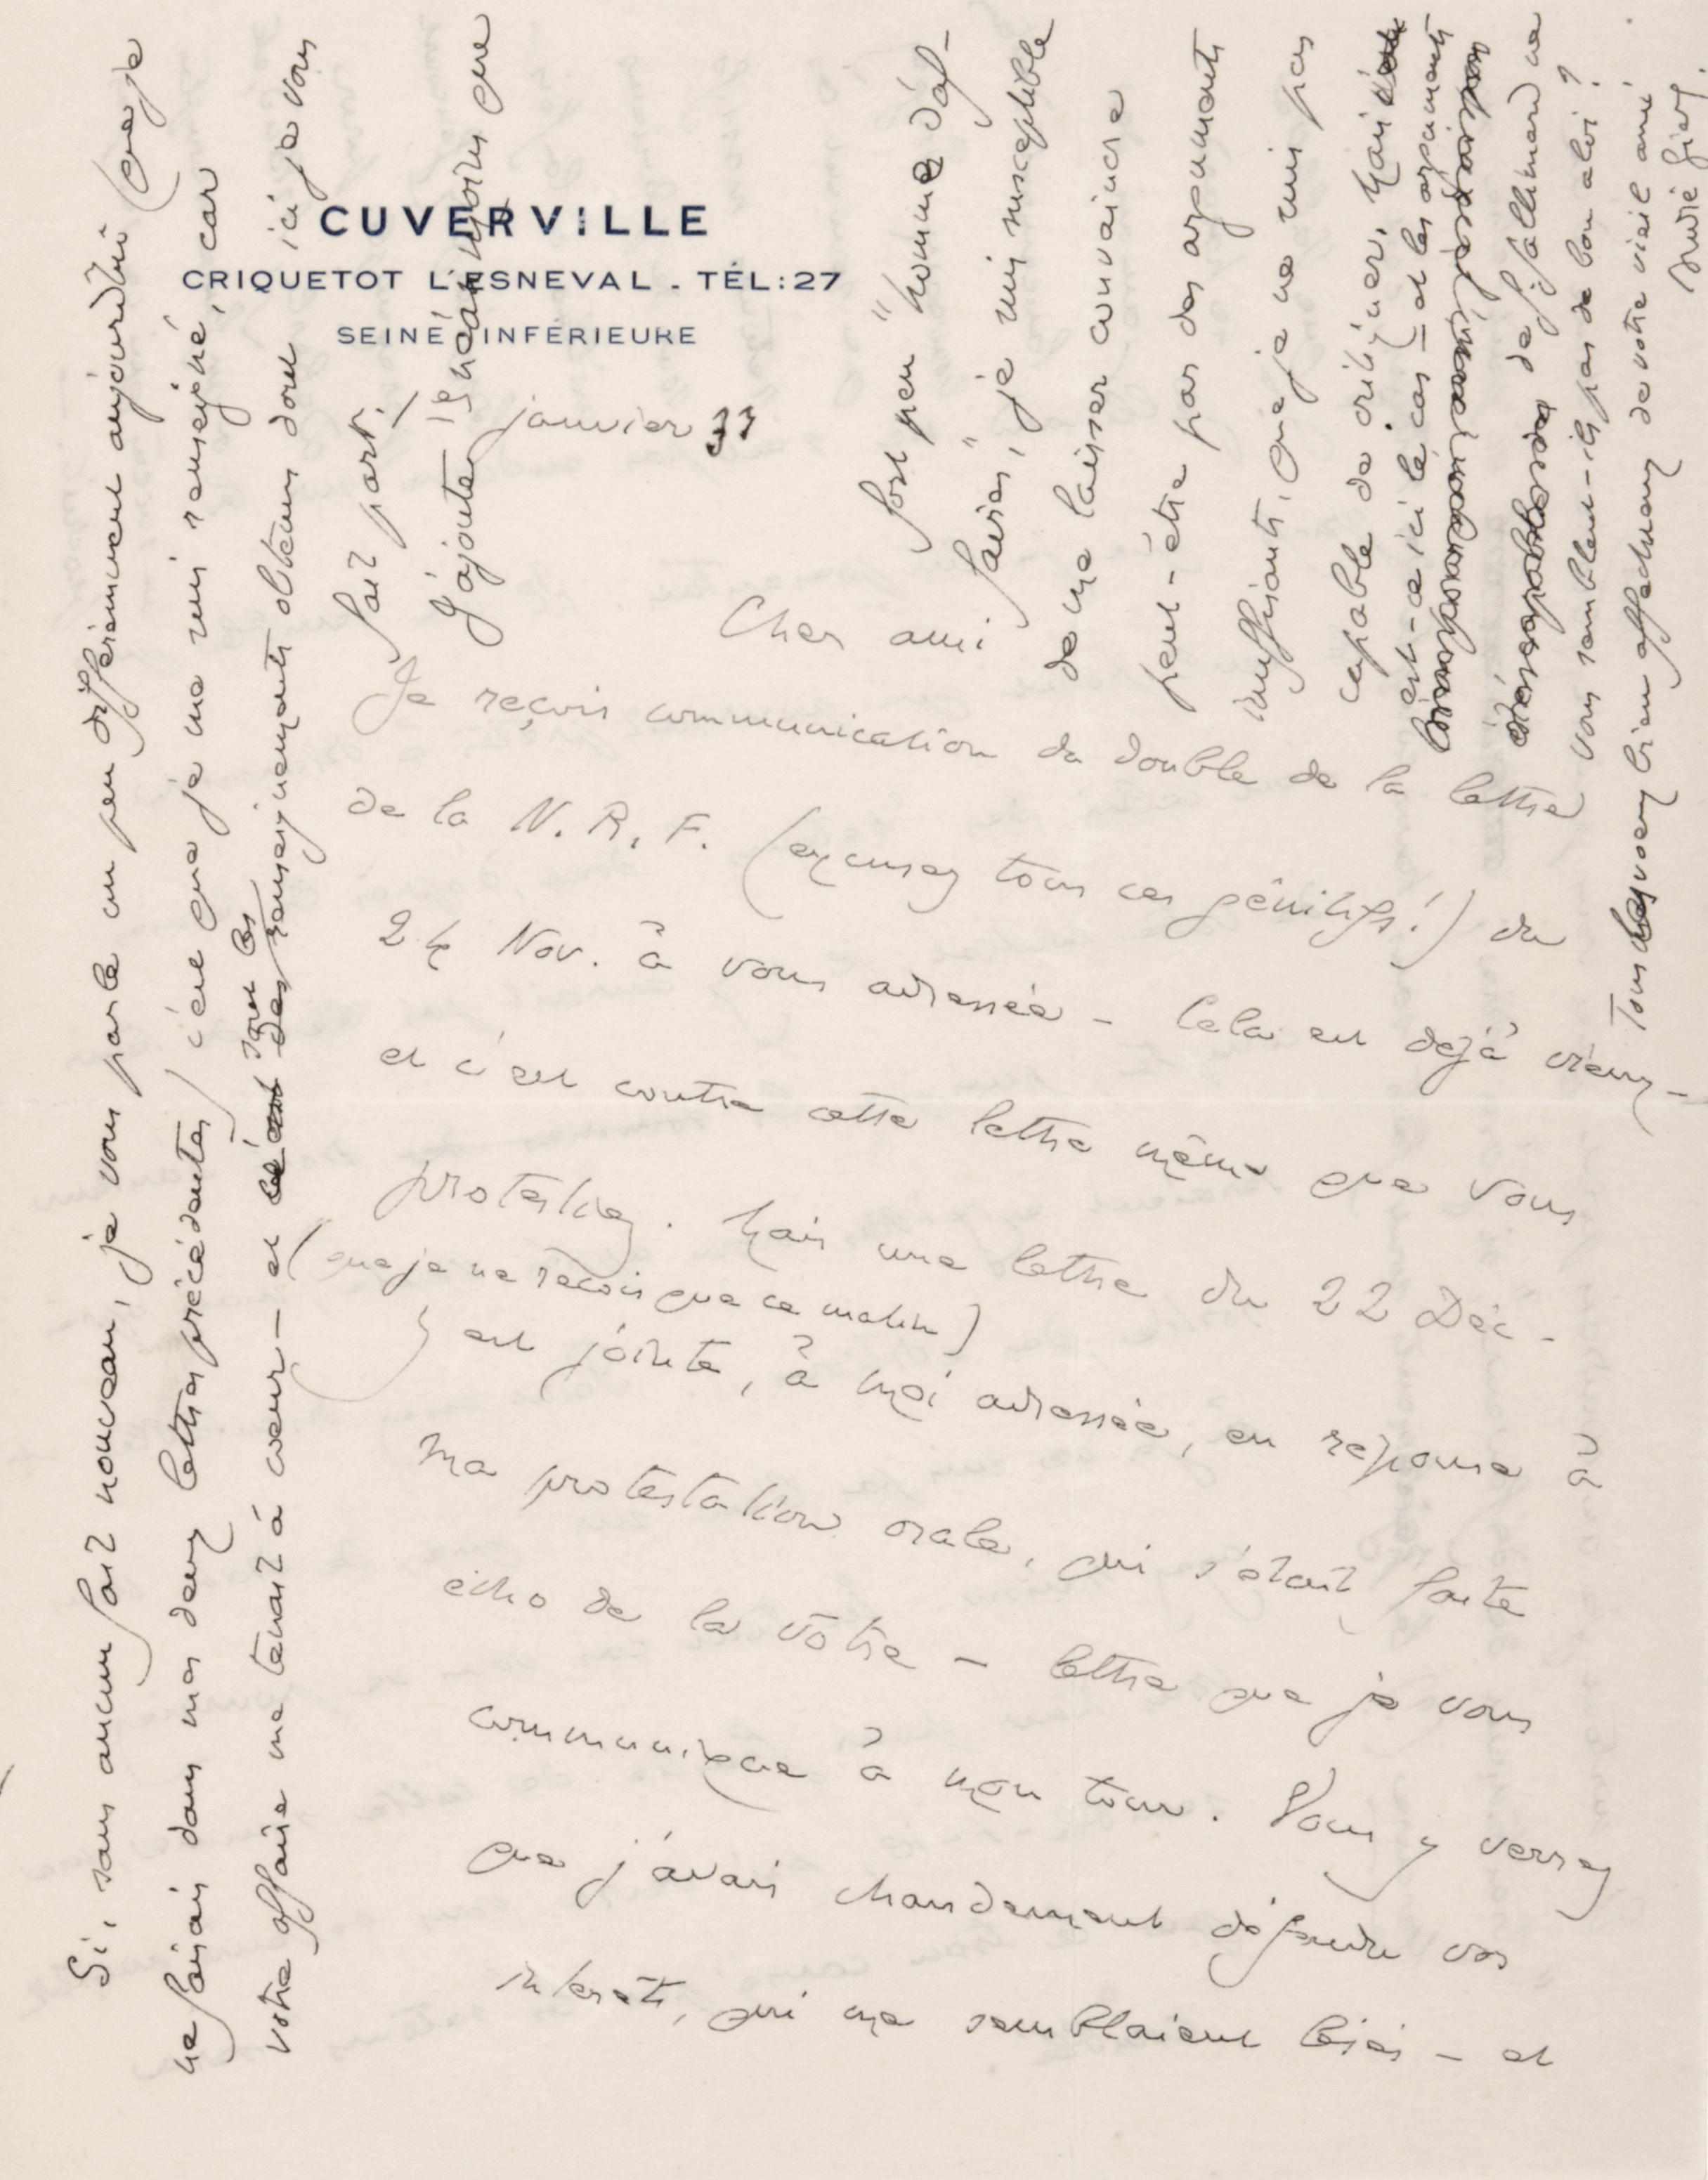 CUVERVILLE
CRIQUETOT L'ESNEVAL - TÉL: 27
SEINE INFÉRIEURE
janvier 33
Cher ami
Je reçois communication du double de la lettre
de la N. R. F. (excusez tous ces génitifs !) du
24 Nov. à vous adressée - Cela est déjà vieux -
et c'est contre cette lettre même que vous
protestiez. Mais une lettre du 22 Déc -
(que je ne reçois que ce matin)
est jointe, à moi adressée, en réponse à
ma protestation orale, qui s'était faite
écho de la vôtre - lettre que je vous
communique à mon tour. Vous y verrez
que j'avais chaudement défendu vos
intérêts, qui me semblaient lésés - et
Si, sans aucun fait nouveau, je vous parle un peu différemment aujourd'hui (que je
ne faisais dans mes deux lettres précédentes) c'est que je me suis renseigné, car
votre affaire me tenait à cœur - et
sont les
des renseignements obtenus dont ici je vous
fait part.
J'ajoute néanmoins que
fort peu "homme d'af-
faires", je suis susceptible
de me laisser convaincre
peut-être par des arguments
insuffisants, que je ne suis pas
capable de critiquer. Mais
est-ce ici le cas - et les arguments
de Gallimard ne
vous semblent-ils pas de bon aloi ?
Tous les vœux bien affectueux de votre vieil ami
André Gide.